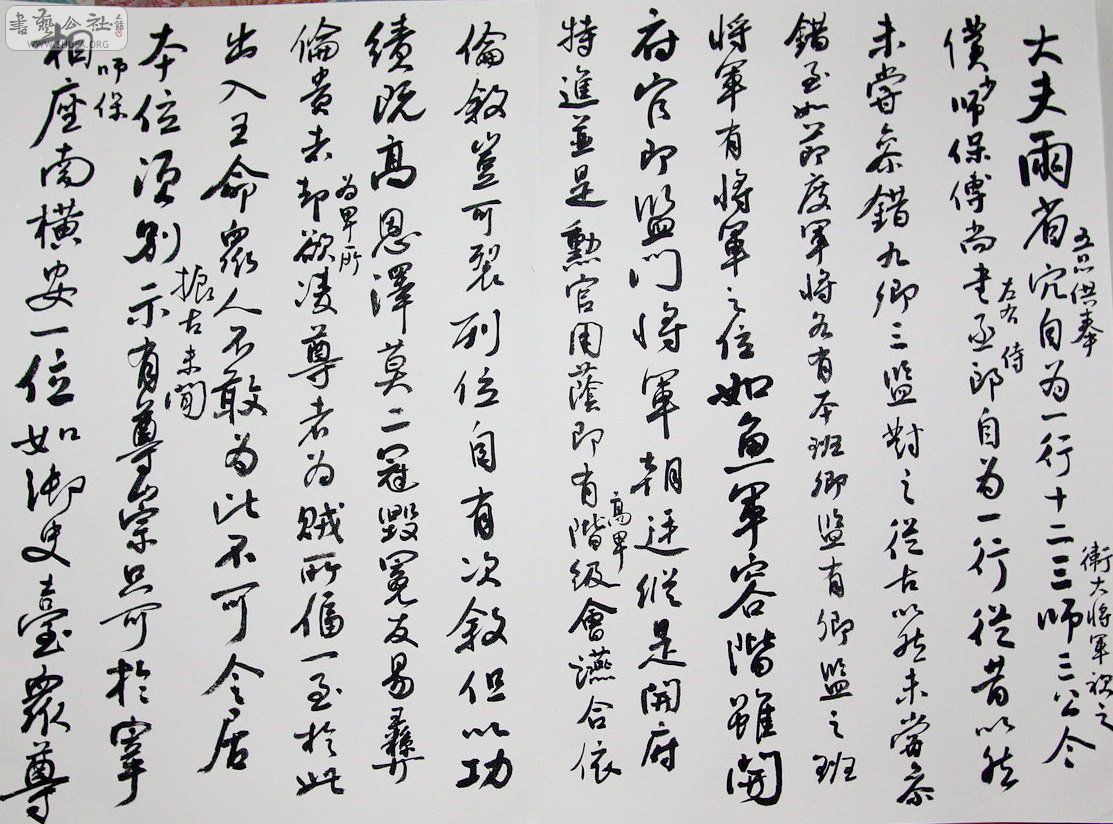 大夫兩省官自为一行十二三師三公令
五品供奉
衛大將軍次之
僕少師保傅尚書丞郎自为一行從昔以然
左右
侍
未嘗參錯九卿三監對之從古以然未嘗參
錯至如節度軍將各有本班卿監有卿監之班
將軍有將軍之位如魚軍容階雖開
府官即監門將軍朝廷縱是開府
特進並是勳官用蔭即有階級會讌合依
高卑
倫敘豈可裂列位自有次敘但以功
績既高恩澤莫二冠毀冕反易彝
倫貴者却欲凌尊者为賊所偪一至於此
为卑所
出入王命眾人不敢为此不可令居
本位須別示有尊崇只可於宰
振古未聞
相座南橫安一位如御史臺眾尊
師保
書藝公社
WWW.SHUFA.ORG